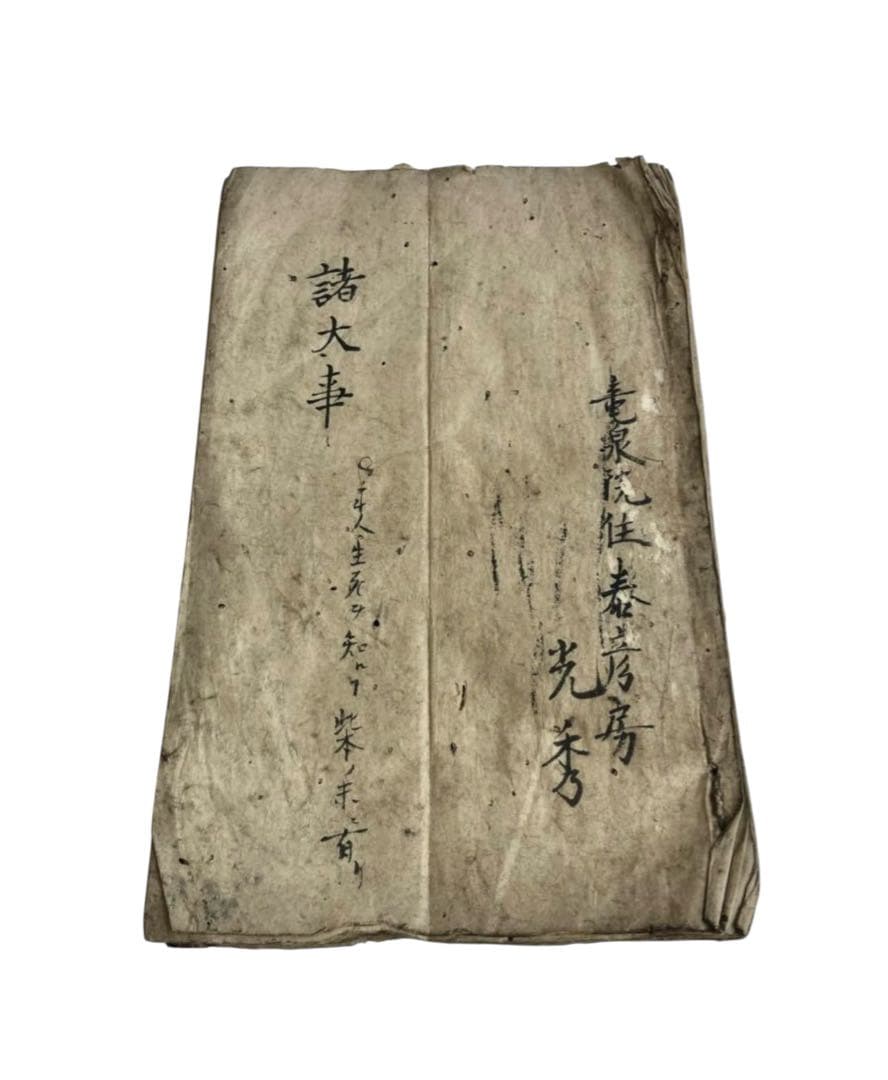 竜泉院住房
光秀
諸大事
人生死ヲ知ルヿ此本ノ末ニ有リ